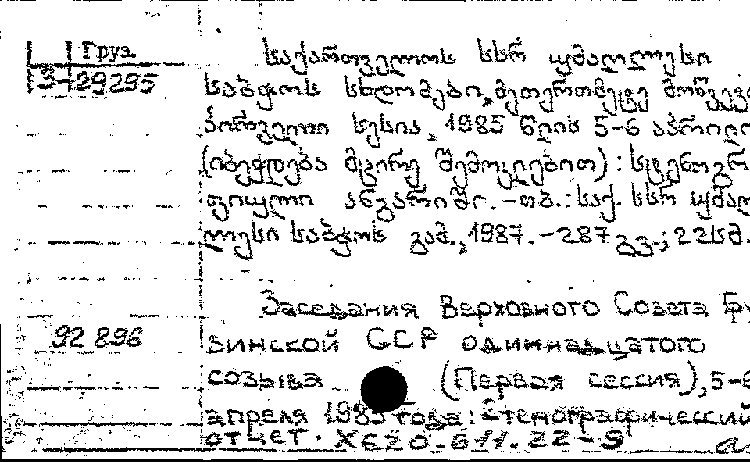 Груз.
3-29295
საქართველოს სსრ უმაღლესი
საბჭოს სხდომები, მეთერთმეტე მოწვევ
პირველი სესია, 1985 წლის 5-6 აპრილი
(იბეჭდება მცირე შემოკლებით): სტენოგრ
ფიული ანგარიში. - თბ.: საქ. სსრ უმაღ
ლესი საბჭოს გამ., 1987. - 287 გვ.; 22სმ.
Заседания Верховного Совета Гру
92 896
зинской ССР одиннадцатого
созыва (Первая сессия), 5-6
апреля 1985 года: Стенографический
отчет. Х620.611.22-9